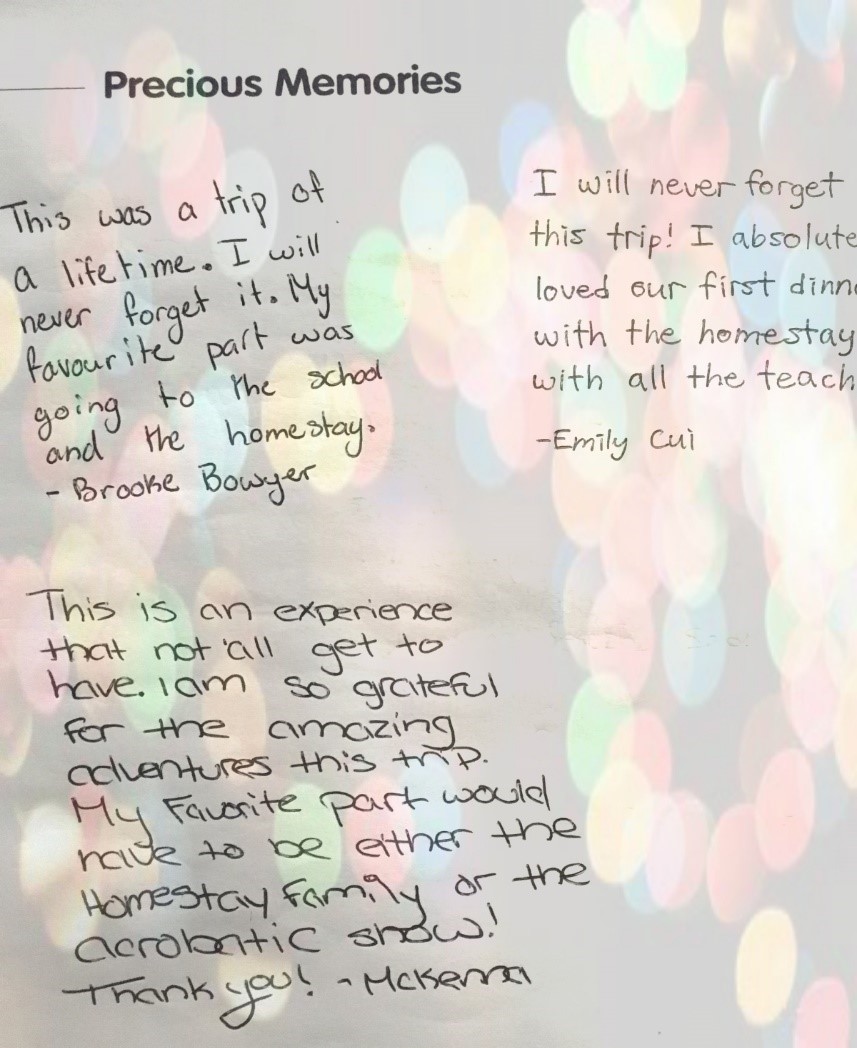 Precious Memories
This was a trip of
a lifetime. I will
never forget it. My
favourite part was
going to the school
and the homestay.
- Brooke Bowyer
I will never forget
this trip! I absolute
loved our first dinn
with the homestay
with all the teach
-Emily Cui
This is an experience
that not all get to
have. I am so grateful
for the amazing
adventures this trip.
My Favorite part would
have to be either the
Homestay family or the
acrobatic show!
Thank you! - McKenna